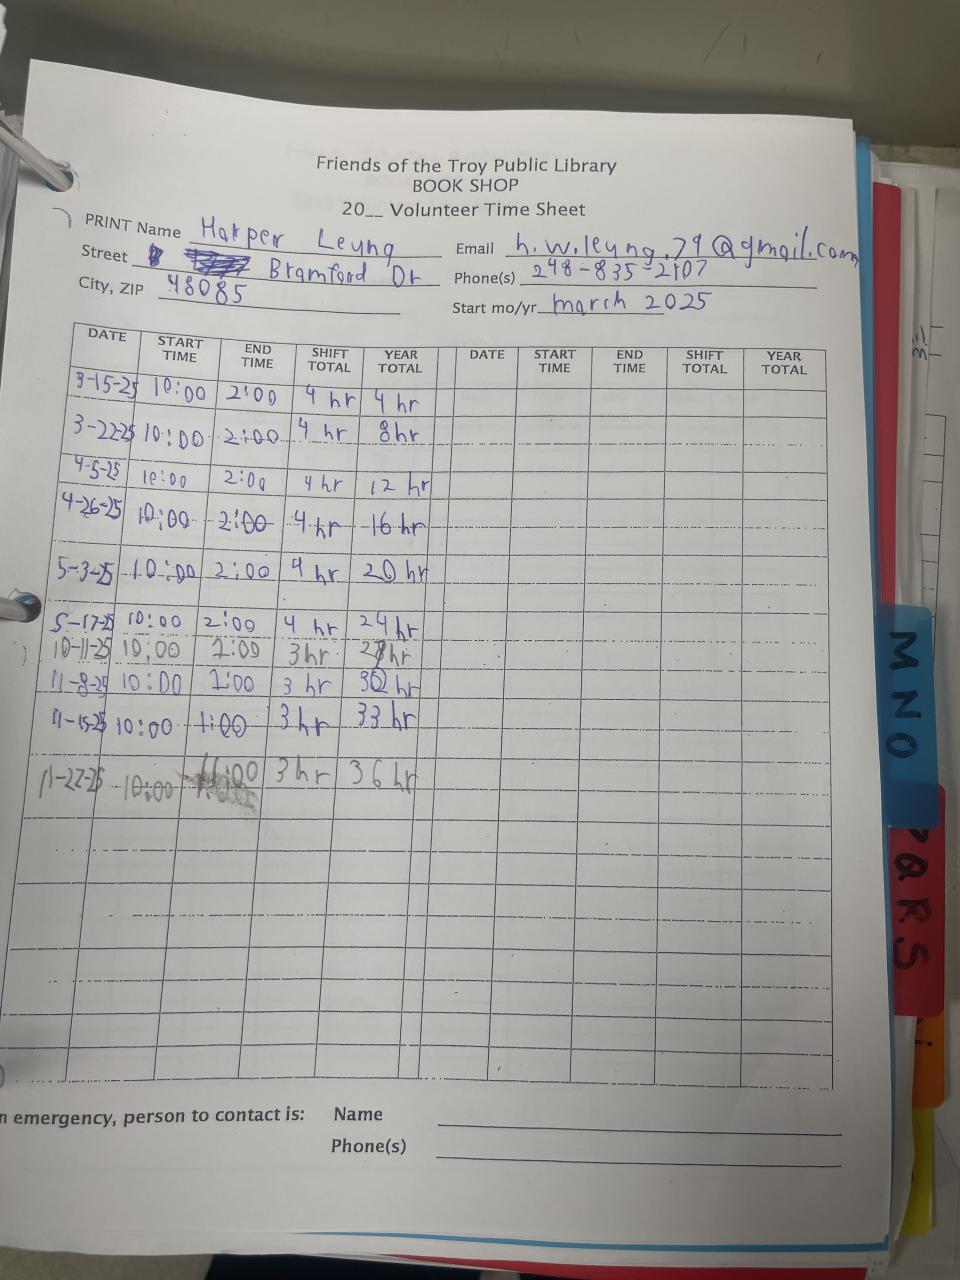 Friends of the Troy Public Library
BOOK SHOP
20__ Volunteer Time Sheet
PRINT Name Harper Leung
Email h.w.leung.79@gmail.com
Street Bramford Dr
Phone(s) 248-835-2107
City, ZIP 48085
Start mo/yr. march 2025
DATE START TIME END TIME SHIFT TOTAL YEAR TOTAL DATE START TIME END TIME SHIFT TOTAL YEAR TOTAL
3-15-25 10:00 2:00 4 hr 4 hr
3-22-25 10:00 2:00 4 hr 8hr
4-5-25 10:00 2:00 4hr 12 hr
4-26-25 10:00 2:00 4 hr 16 hr
5-3-25 10:00 2:00 4 hr 20 hr
5-17-25 10:00 2:00 4 hr 24hr
10-11-25 10:00 1:00 3hr hr
11-8-25 10:00 1:00 3 hr 30 hr
11-15-25 10:00 1:00 3hr 33 hr
11-22-25 10:00 3hr 36 hr
n emergency, person to contact is: Name
Phone(s)
MNO
PQRS